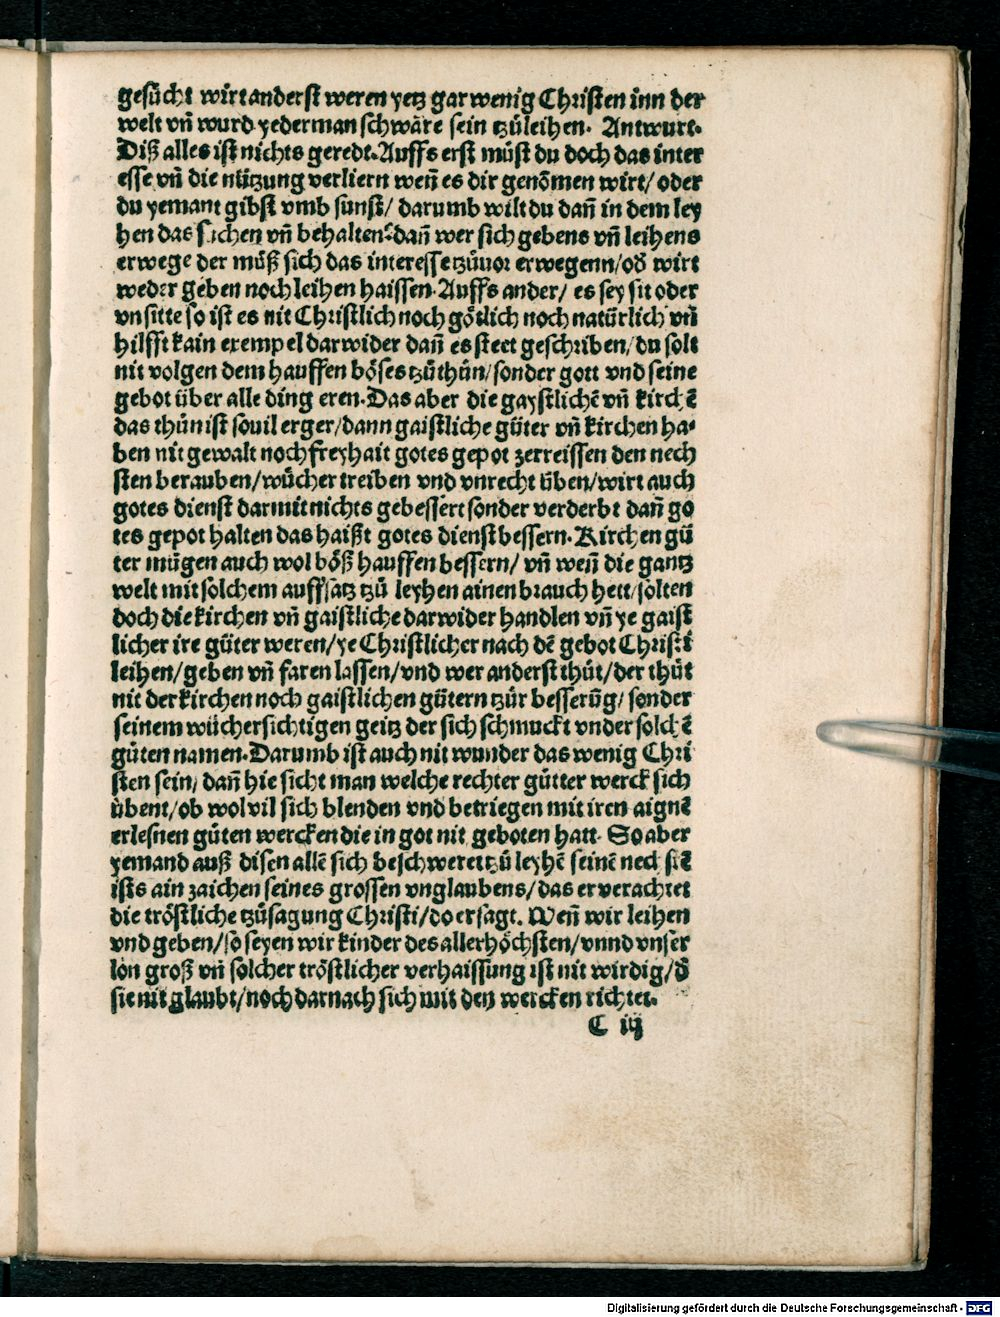 gesůcht wirt anderst weren yetz gar wenig Christen inn der
welt vñ wurd yederman schwåre sein tzůleihen. Antwurt.
Diß alles ist nichts geredt. Auffs erst můst du doch das inter
esse vñ die nützung verliern weñ es dir genõmen wirt/ oder
du yemant gibst vmb sunst/ darumb wilt du dañ in dem ley
hen das suchen vñ behalten? dañ wer sich gebens vñ leihens
erwege der můß sich das interesse tzůuor erwegenn/ oď wirt
weder geben noch leihen haissen. Auffs ander/ es sey sit oder
vnsitte so ist es nit Christlich noch gŏtlich noch natürlich vñ
hilfft kain exempel darwider dañ es steet geschriben/ du solt
nit volgen dem hauffen bŏses tzůthůn/ sonder gott vnd seine
gebot über alle ding eren. Das aber die gaystlichẽ vñ kirchẽ
das thůn ist souil erger/ dann gaistliche gůter vñ kirchen ha-
ben nit gewalt noch freyhait gotes gepot zerreissen den nech
sten berauben/ wůcher treiben vnd vnrecht üben/ wirt auch
gotes dienst darmit nichts gebessert sonder verderbt dañ go
tes gepot halten das haißt gotes dienst bessern. Kirchen gů
ter mügen auch wol bŏß hauffen bessern/ vñ weñ die gantz
welt mit solchem auffsatz tzů leyhen ainen brauch hett/ solten
doch die kirchen vñ gaistliche darwider handlen vñ ye gaist
licher ire gůter weren/ ye Christlicher nach dẽ gebot Christi
leihen/ geben vñ faren lassen/ vnd wer anderst thůt/ der thůt
nit der kirchen noch gaistlichen gůtern tzůr besserũg/ sonder
seinem wůchersichtigen geitz der sich schmuckt vnder solchẽ
gůten namen. Darumb ist auch nit wunder das wenig Chri
sten sein/ dañ hie sicht man welche rechter gůtter werck sich
übent/ ob wol vil sich blenden vnd betriegen mit iren aignẽ
erlesnen gůten wercken die in got nit geboten hatt. So aber
yemand auß disen allẽ sich beschweret tzů leyhẽ seinẽ nechstẽ
ists ain zaichen seines grossen vnglaubens/ das er verachtet
die trŏstliche tzůsagung Christi/ do er sagt. Weñ wir leihen
vnd geben/ so seyen wir kinder des allerhŏchsten/ vnnd vnser
lon groß vñ solcher trŏstlicher verhaissung ist nit wirdig/ ď
sie nit glaubt/ noch darnach sich mit den wercken richtet.
C iij
Digitalisierung gefördert durch die Deutsche Forschungsgemeinschaft - DFG